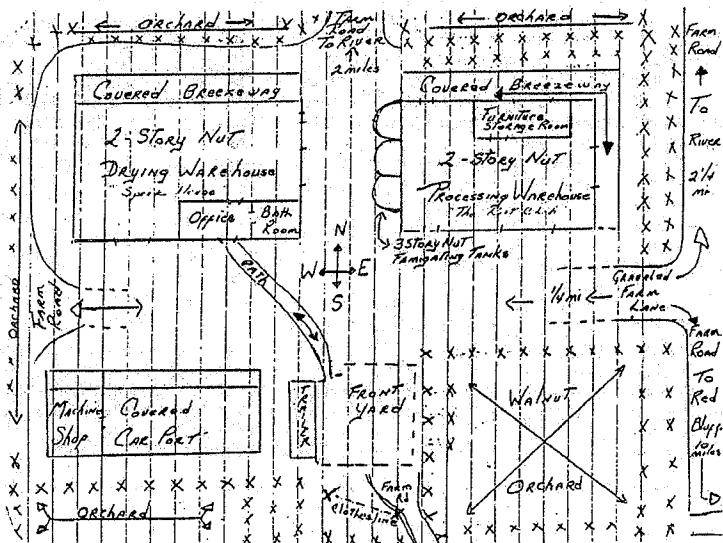 ORCHARD
FARM
ROAD
TO RIVER
2 miles
ORCHARD
FARM
ROAD
TO
RIVER
2 1/4
mi
COVERED BREEZEWAY
2-STORY NUT
DRYING WAREHOUSE
OFFICE
BATH
ROOM
COVERED BREEZEWAY
FURNITURE
STORAGE ROOM
2-STORY NUT
PROCESSING WAREHOUSE
3 STORY NUT
FAMIGATING TANKS
N
W E
S
PATH
ORCHARD
FARM
ROAD
1/4 mi
GRAVELED
FARM
LANE
FARM
ROAD
TO
RED
BLUFF
10
miles
MACHINE
SHOP
COVERED
CAR PORT
TRAILER
FRONT
YARD
WALNUT
ORCHARD
FARM
RD
Clothesline
ORCHARD